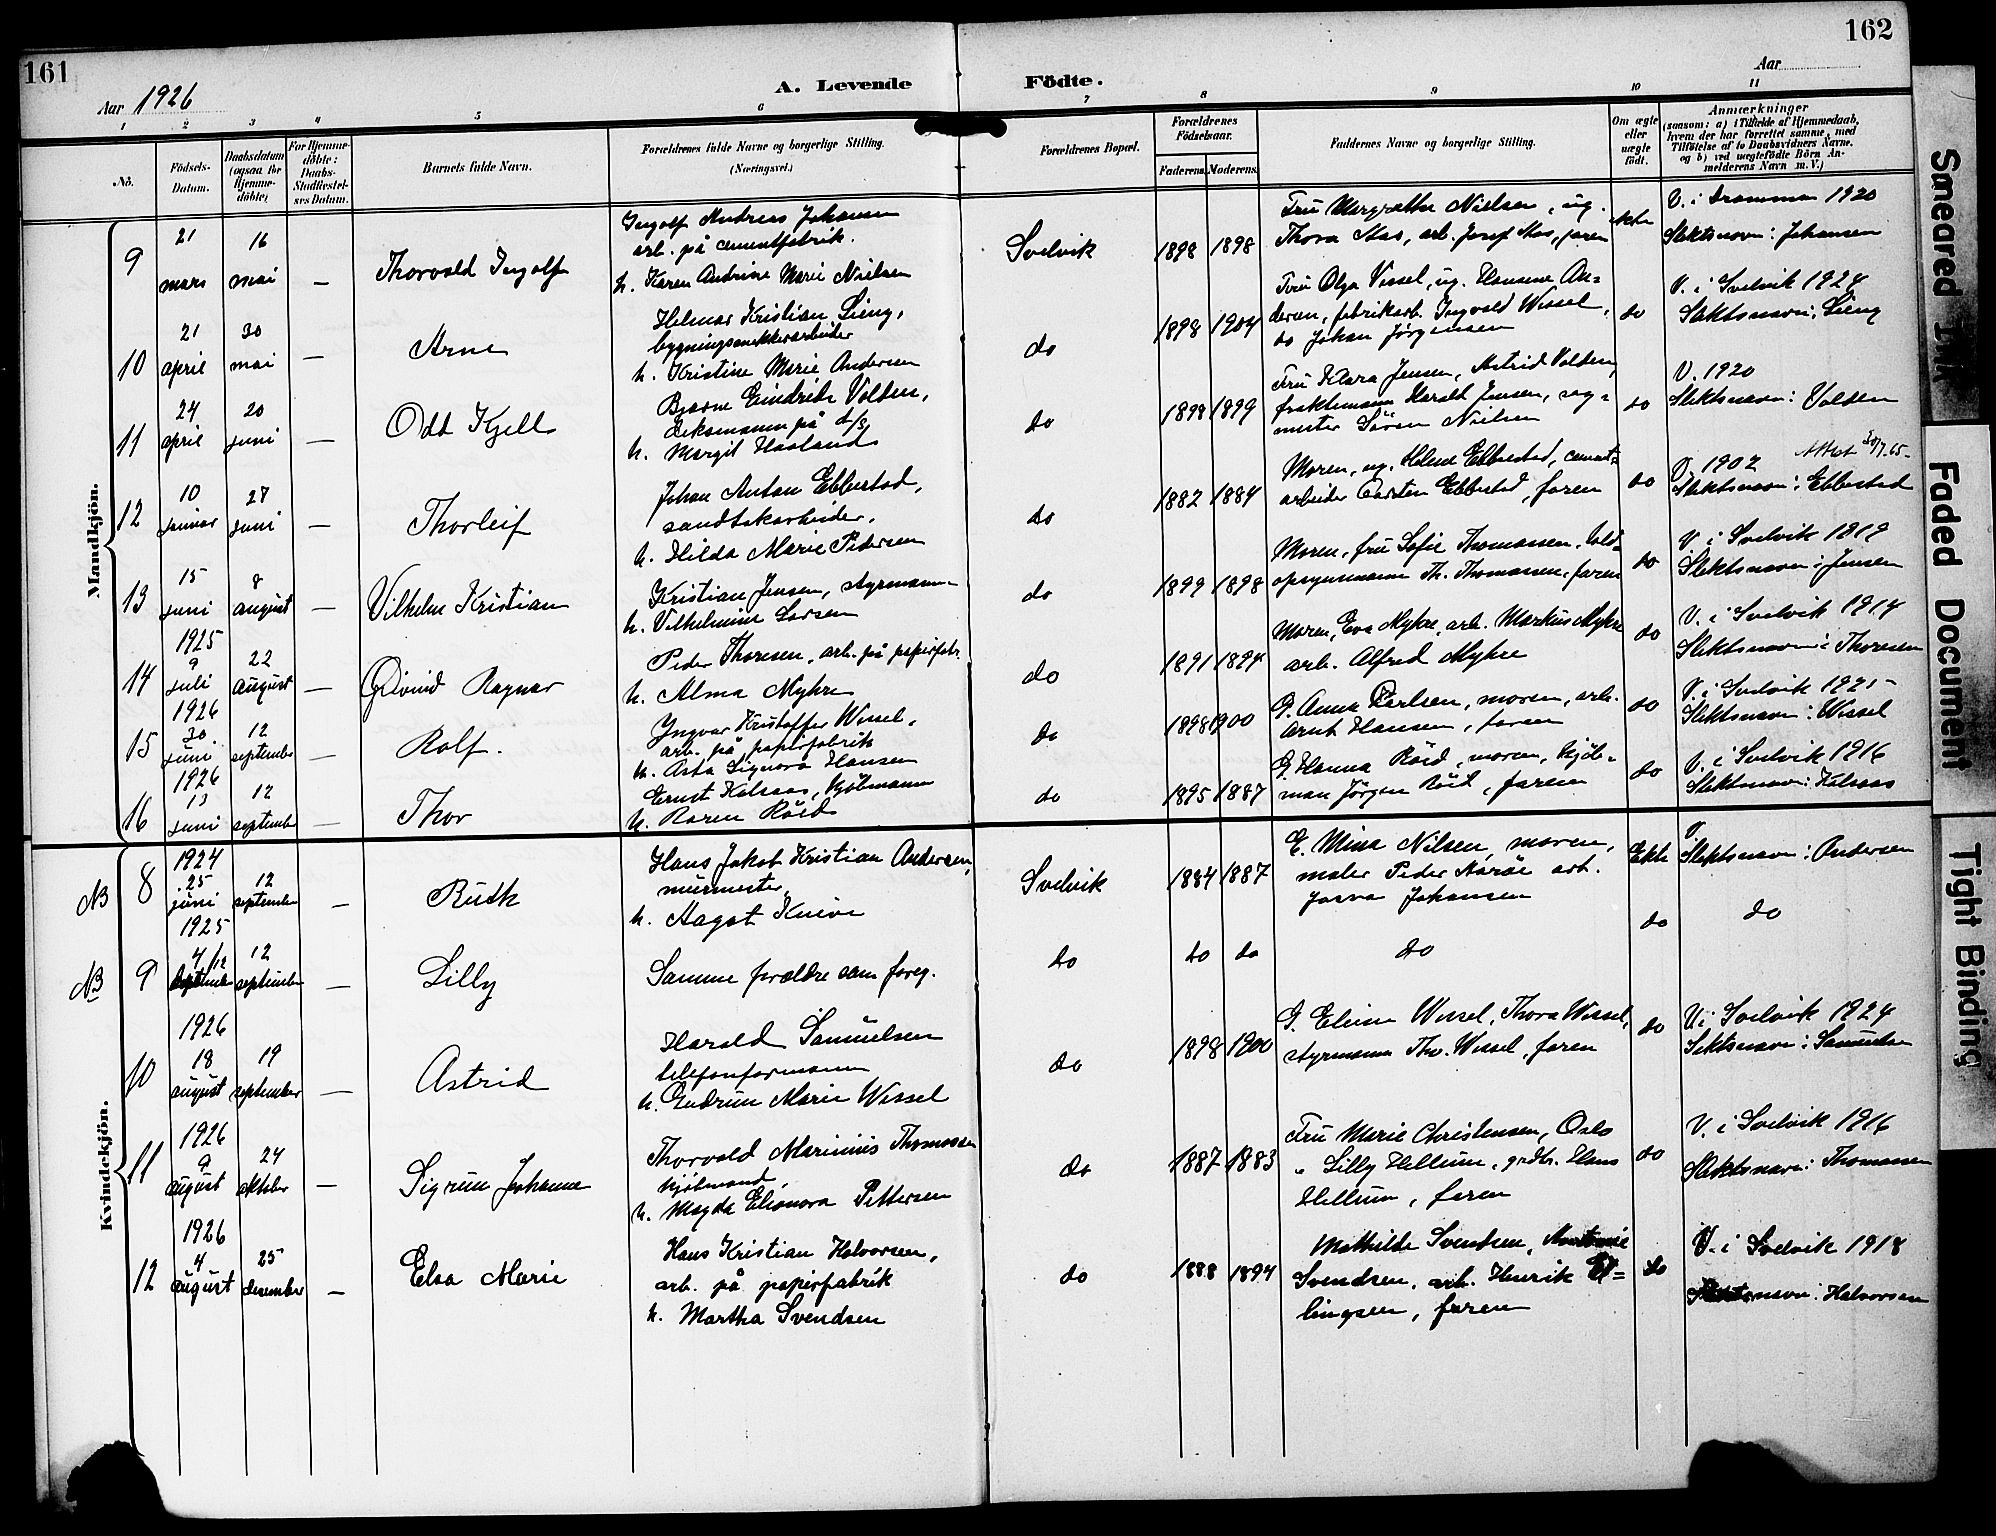 161
162
Aar 1926
A. Levende
Födte.
Aar
1 2 3 4 5 6 7 8 9 10 11
No.
Födsels-
Datum.
Daabsdatum
(ogsaa for
Hjemme-
döbte)
For Hjemme-
döbte:
Daabs-
Stadfæstel-
ses Datum.
Barnets fulde Navn.
Forældrenes fulde Navne og borgerlige Stilling.
(Næringsvei.)
Forældrenes Bopæl.
Forældrenes
Födselsaar.
Faderens.
Moderens.
Faddernes Navne og borgerlige Stilling.
Om ægte
eller
uægte
födt.
Anmærkninger
(saasom: a) i Tilfælde af Hjemmedaab,
hvem der har forrettet samme, med
Tilföielse af to Daabsvidners Navne.
og b) ved uægtefödte Börn An-
melderens Navn m. V.)
Mandkjön.
9
21
mars
16
mai
—
Thorvald Ingolf
Ingolf Andreas Johansen
arb. på cementfabrik.
h. Karen Andrine Marie Nielsen
Svelvik
1898 1898
Fru Margrethe Nielsen, ug.
Thora Aas, arb. Josef Aas, faren
ekte
V. i Drammen 1920
Slektsnavn: Johansen
10
21
april
30
mai
—
Arne
Helmar Kristian Lieng,
bygningssnekkerarbeider
h. Kristine Marie Andersen
do
1898 1904
Fru Olga Wessel, ug. Hansine An-
dersen, fabrikarb. Ingvald Wessel,
do Johan Jørgensen
do
V. i Svelvik 1924
Slektsnavn: Lieng
11
24
april
20
juni
—
Odd Kjell
Bjarne Eindride Volden,
deksmann på d/s
h. Margit Haaland
do
1898 1899
Fru Klara Jensen, Astrid Volden,
fraktemann Harald Jensen, seg-
mester Sören Nielsen
do
V. 1920
Slektsnavn: Volden
12
10
januar
27
juni
—
Thorleif
Johan Anton Ebbestad,
sandtakarbeider.
h. Hilda Marie Pedersen
do
1882 1884
Moren, ug. Helene Ebbestad, cement-
arbeider Carsten Ebbestad, faren
do
V. 1902
Attest 30/7.65
Slektsnavn: Ebbestad
13
15
juni
8
august
—
Vilhelm Kristian
Kristian Jensen, styrmann
h. Vilhelmine Larsen
do
1899 1898
Moren, fru Sofie Thomassen, told-
opsynsmann Th. Thomassen, faren
do
V. i Svelvik 1919
Slektsnavn: Jensen
14
1925
9
juli
22
august
—
Øivind Ragnar
Peder Thoresen, arb. på papirfabr.
h. Alma Myhre
do
1891 1894
Moren, Eva Myhre, arb. Markus Myhre
arb. Alfred Myhre
do
V. i Svelvik 1914
Slektsnavn: Thoresen
15
1926
30
juni
12
september
—
Rolf.
Ingvar Kristoffer Wessel,
arb. på papirfabrik
h. Asta Signora Hansen
do
1898 1900
G. Anna Karlsen, moren, arb.
Arnt Hansen, faren
do
V. i Svelvik 1925
Slektsnavn: Wessel
16
1926
13
juni
12
september
—
Thor
Ernst Kolsaas, kjøbmann
h. Karen Röed
do
1895 1887
G. Hanna Röed, moren, kjöb-
man Jörgen Röed, faren
do
V. i Svelvik 1916
Slektsnavn: Kolsaas
Kvindekjön.
NB 8
1924
25
juni
12
september
—
Ruth
Hans Jakob Kristian Andersen,
murmester,
h. Aagot Kneive
Svelvik
1884 1887
E. Mina Nilsen, moren,
maler Peder Naröe arb.
Josva Johansen
Ekte
Slektsnavn: Andersen
NB 9
1925
4/12
september
12
september
—
Lilly
Samme forældre som foreg.
do
do do
do
do
do
10
1926
18
august
19
september
—
Astrid
Harald Samuelsen
telefonformann
h. Gudrun Marie Wessel
do
1898 1900
G. Elvine Wessel, Thora Wessel,
styrmann Thv. Wessel, faren
do
V. i Svelvik 1924
Slektsnavn: Samuelsen
11
1926
9
august
24
oktober
—
Sigrun Johanne
Thorvald Marinius Thomassen
kjöbmand,
h. Magda Elionora Pettersen
do
1887 1883
Fru Marie Christensen, Oslo
" Lilly Hellum, grdbr. Hans
Hellum, faren
do
V. i Svelvik 1916
Slektsnavn: Thomassen
12
1926
4
august
25
desember
—
Elsa Marie
Hans Kristian Halvorsen,
arb. på papirfabrik
h. Martha Svendsen
do
1888 1894
Mathilde Svendsen, Antonie
Svendsen, arb. Henrik El-
lingsen, faren
do
V. i Svelvik 1918
Slektsnavn: Halvorsen
Smeared Ink
Faded Document
Tight Binding